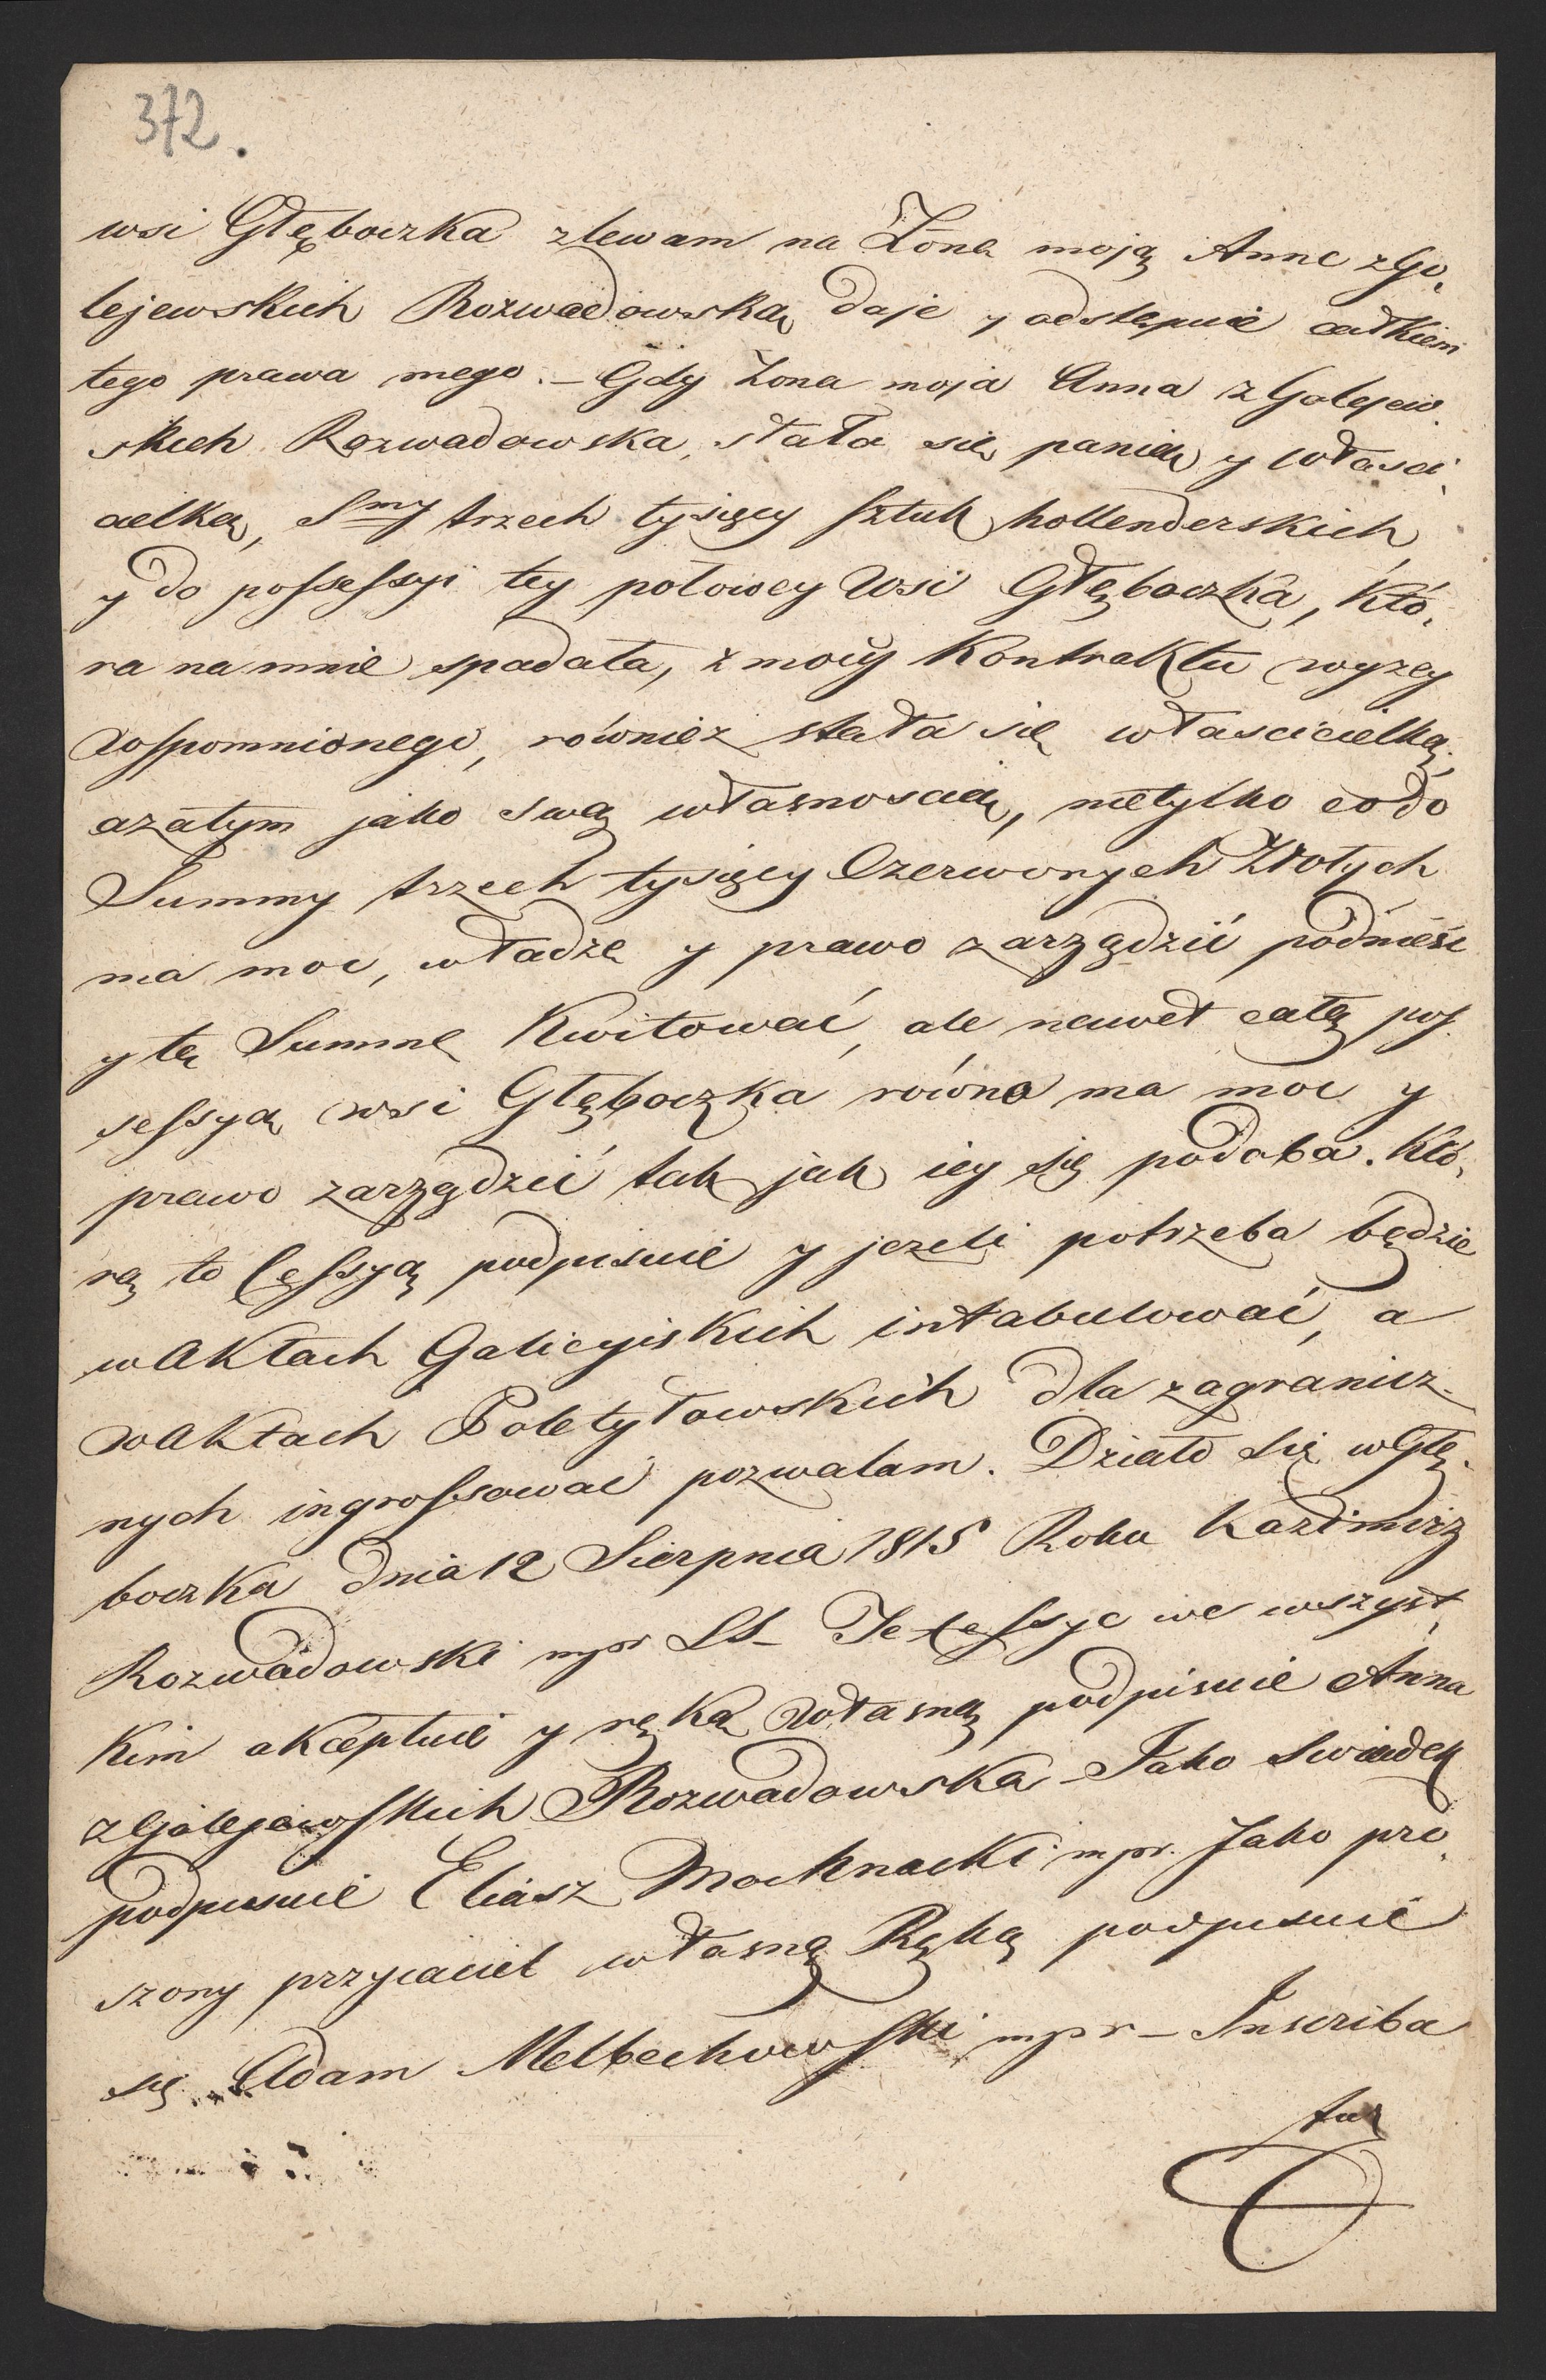 372.
wsi Głęboczka zlewam na Żonę moją Annę z Go,
lejewskich Rozwadowską daję y odstępuię całkiem
tego prawa mego. – Gdy Żona moja Anna z Golejew
skich Rozwadowska, stała się panią y własci,
cielką, Smy trzech tysięcy sztuk hollenderskich
y do possessyi tey połowey Wsi Głęboczka, Któ,
ra na mnie spadała, z mocy Kontraktu wyzey
wspomnionego, równiez stała się własciecielką,
azatym jako swą własnoscią, nietylko co do
Summy trzech tysięcy Czerwonych Złotych
ma moc, władzę y prawo zarządzić podnieśc
y tę Summę Kwitować, ale nawet całą pos
sessyą wsi Głęboczka równą ma moc y
prawo zarządzić tak jak iey się podoba. Któ,
rą to Cessyą podpisuię y jezeli potrzeba będzie
w Aktach Galicyiskich intabulować, a
w Aktach Poletyłowskich dla zagranicz-
nych ingrossować pozwalam. Działo się w Głę,
boczka dnia 12 Sierpnia 1815 Roku Kazimirz
Rozwadowski mpr LS – Te Cessye we wszyst,
kim akceptuię y ręką własną podpisuię Anna
z Golejewskich Rozwadowska – Jako swiadek
podpisuię Eliasz Mochnacki mpr. Jako pro,
szony przyiaciel własną Ręką podpisuię
się Adam Melbechowski mpr – Inscriba
tur